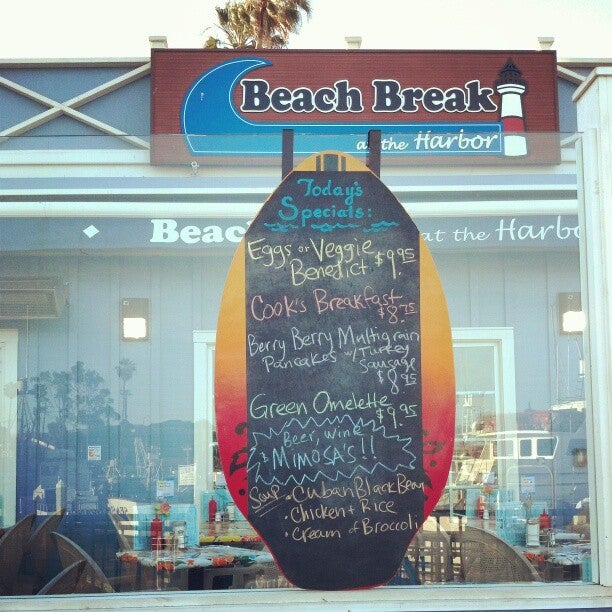 Beach Break
at the Harbor
Beac
at the Harbo
Today's
Specials:
Eggs or Veggie
Benedict $9.95
Cook's Breakfast
$8.75
Berry Berry Multigrain
Pancakes w/ Turkey
Sausage
$8.95
Green Omelette
$9.95
Beer, Wine
& MIMOSA'S!!
Soup • Cuban Black Bean
• Chicken & Rice
• Cream of Broccoli